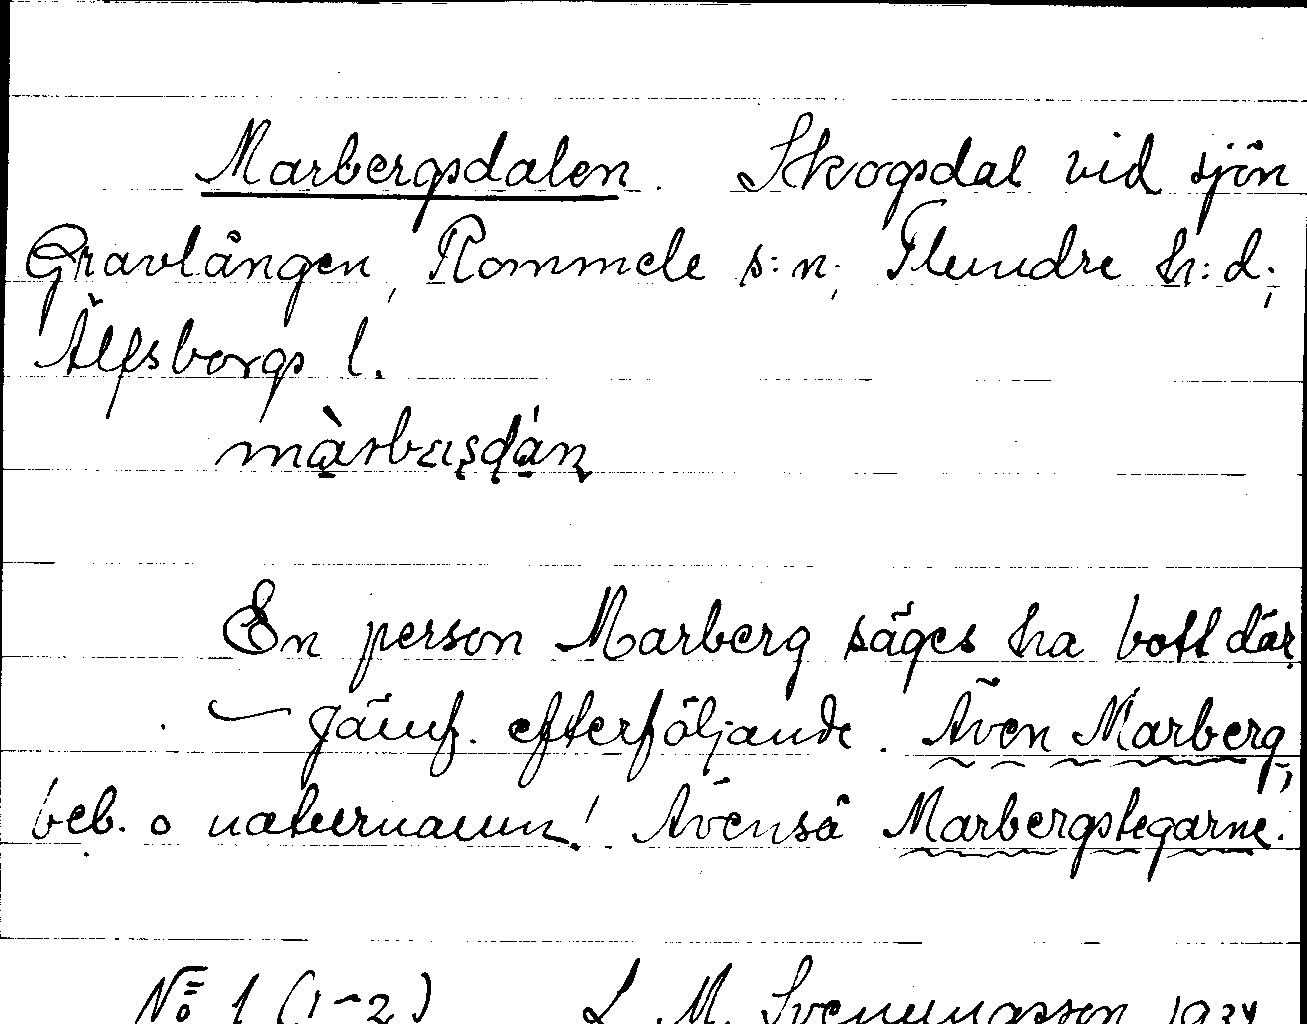 Marbergsdalen. Skogsdal vid sjön
Gravlången, Rommele s:n, Flundre h:d;
Älfsborgs l.
En person Marberg säges ha bott där
— Jämf. efterföljande. Även Marberg,
beb. o naturnamn! Ävenså Marbergstegarne.
No 1 (1-2) L. M. Svennungsson